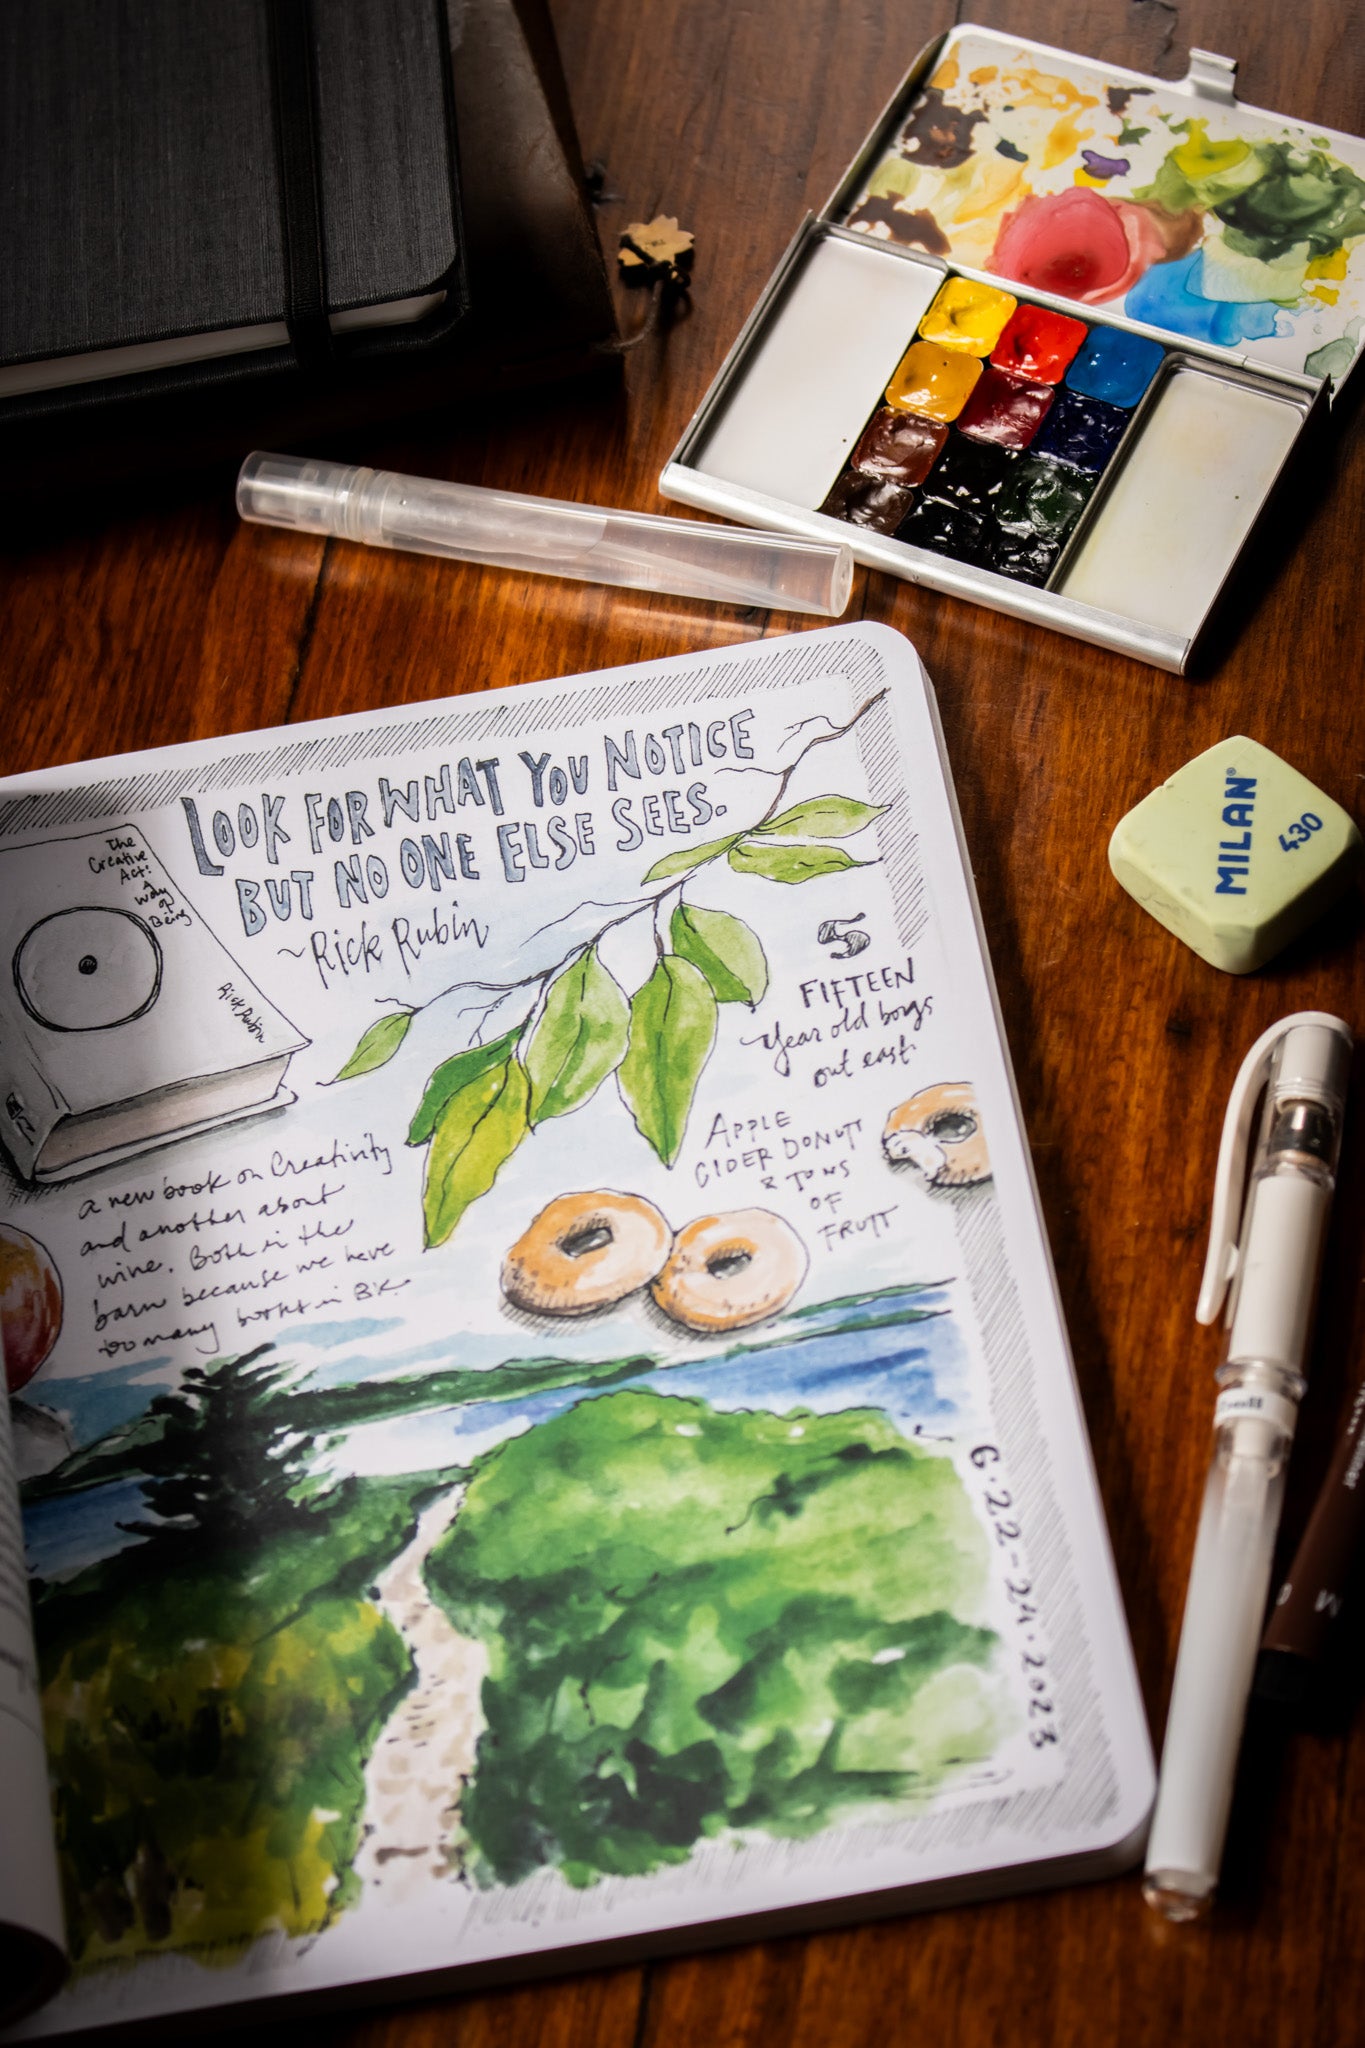 LOOK FOR WHAT YOU NOTICE
BUT NO ONE ELSE SEES.
~Rick Rubin
The
Creative
Act: A
Way
of
Being
Rick Rubin
5
FIFTEEN
year old boys
out east
APPLE
CIDER DONUTS
& TONS
OF
FRUIT
a new book on Creativity
and another about
wine. Both in the
barn because we have
too many books in BK.
6.22-24.2023
MILAN®
430